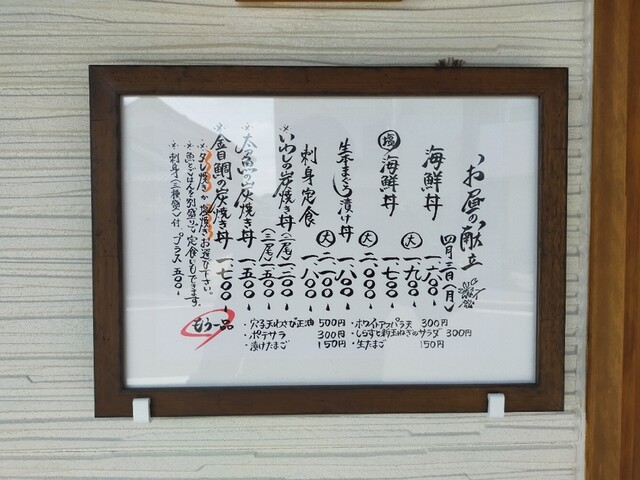 お昼の献立
四月三日(月)
海鮮丼 一、六〇〇
(大) 一、九〇〇
塩 海鮮丼
(大) 二、〇〇〇
生本まぐろ漬け丼 一、八〇〇
(大) 二、一〇〇
刺身定食 一、八〇〇
※いわしの炭焼き丼(二尾)一、三〇〇
(三尾)一、五〇〇
炭焼き丼 一、五〇〇
※金目鯛の炭焼き丼 一、七〇〇
※タレ焼きか塩焼きお選び下さい。
※魚とごはんを別盛りで定食にもできます。
※刺身(三種盛)付 プラス 五〇〇
もう一品
・穴子玉わさび正油 500円
・ポテサラ 300円
・漬けたまご 150円
・ホワイトアスパラ天 300円
・しらすと新玉ねぎのサラダ 300円
・生たまご 150円